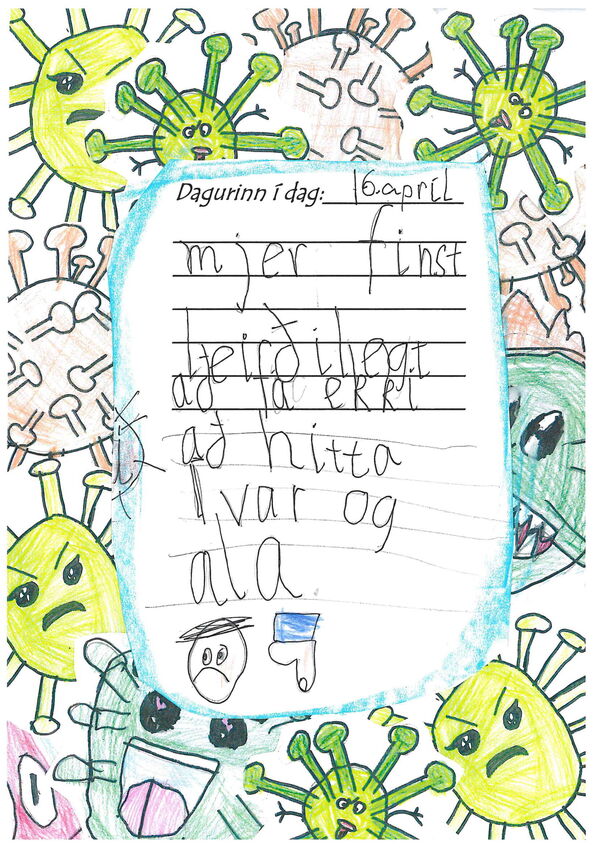 Dagurinn í dag: 16.apríl
mjer finst
leirðilegt
að fá ekki
að hitta
Ivar og
ala